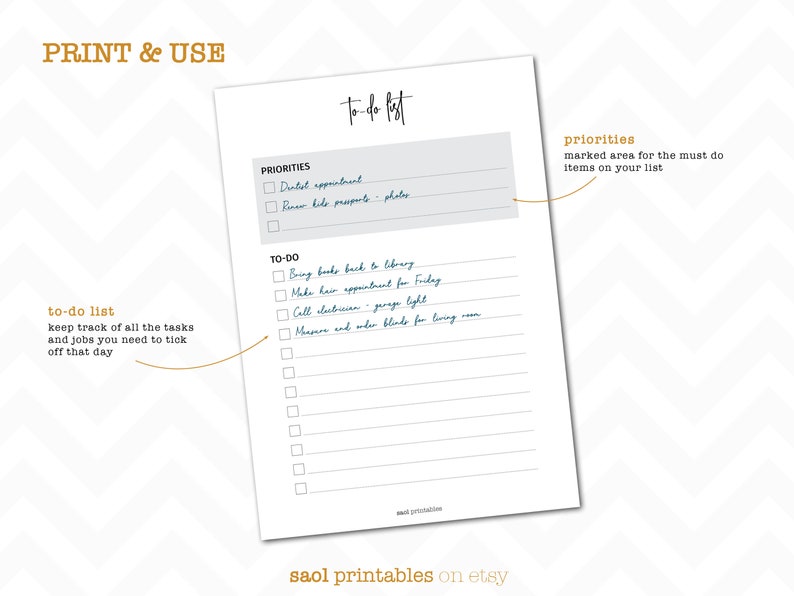 PRINT & USE
to-do list
PRIORITIES
Dentist appointment
Renew kids passports - photos
TO-DO
Bring books back to library
Make hair appointment for Friday
Call electrician - garage light
Measure and order blinds for living room
saol printables
priorities
marked area for the must do
items on your list
to-do list
keep track of all the tasks
and jobs you need to tick
off that day
saol printables on etsy